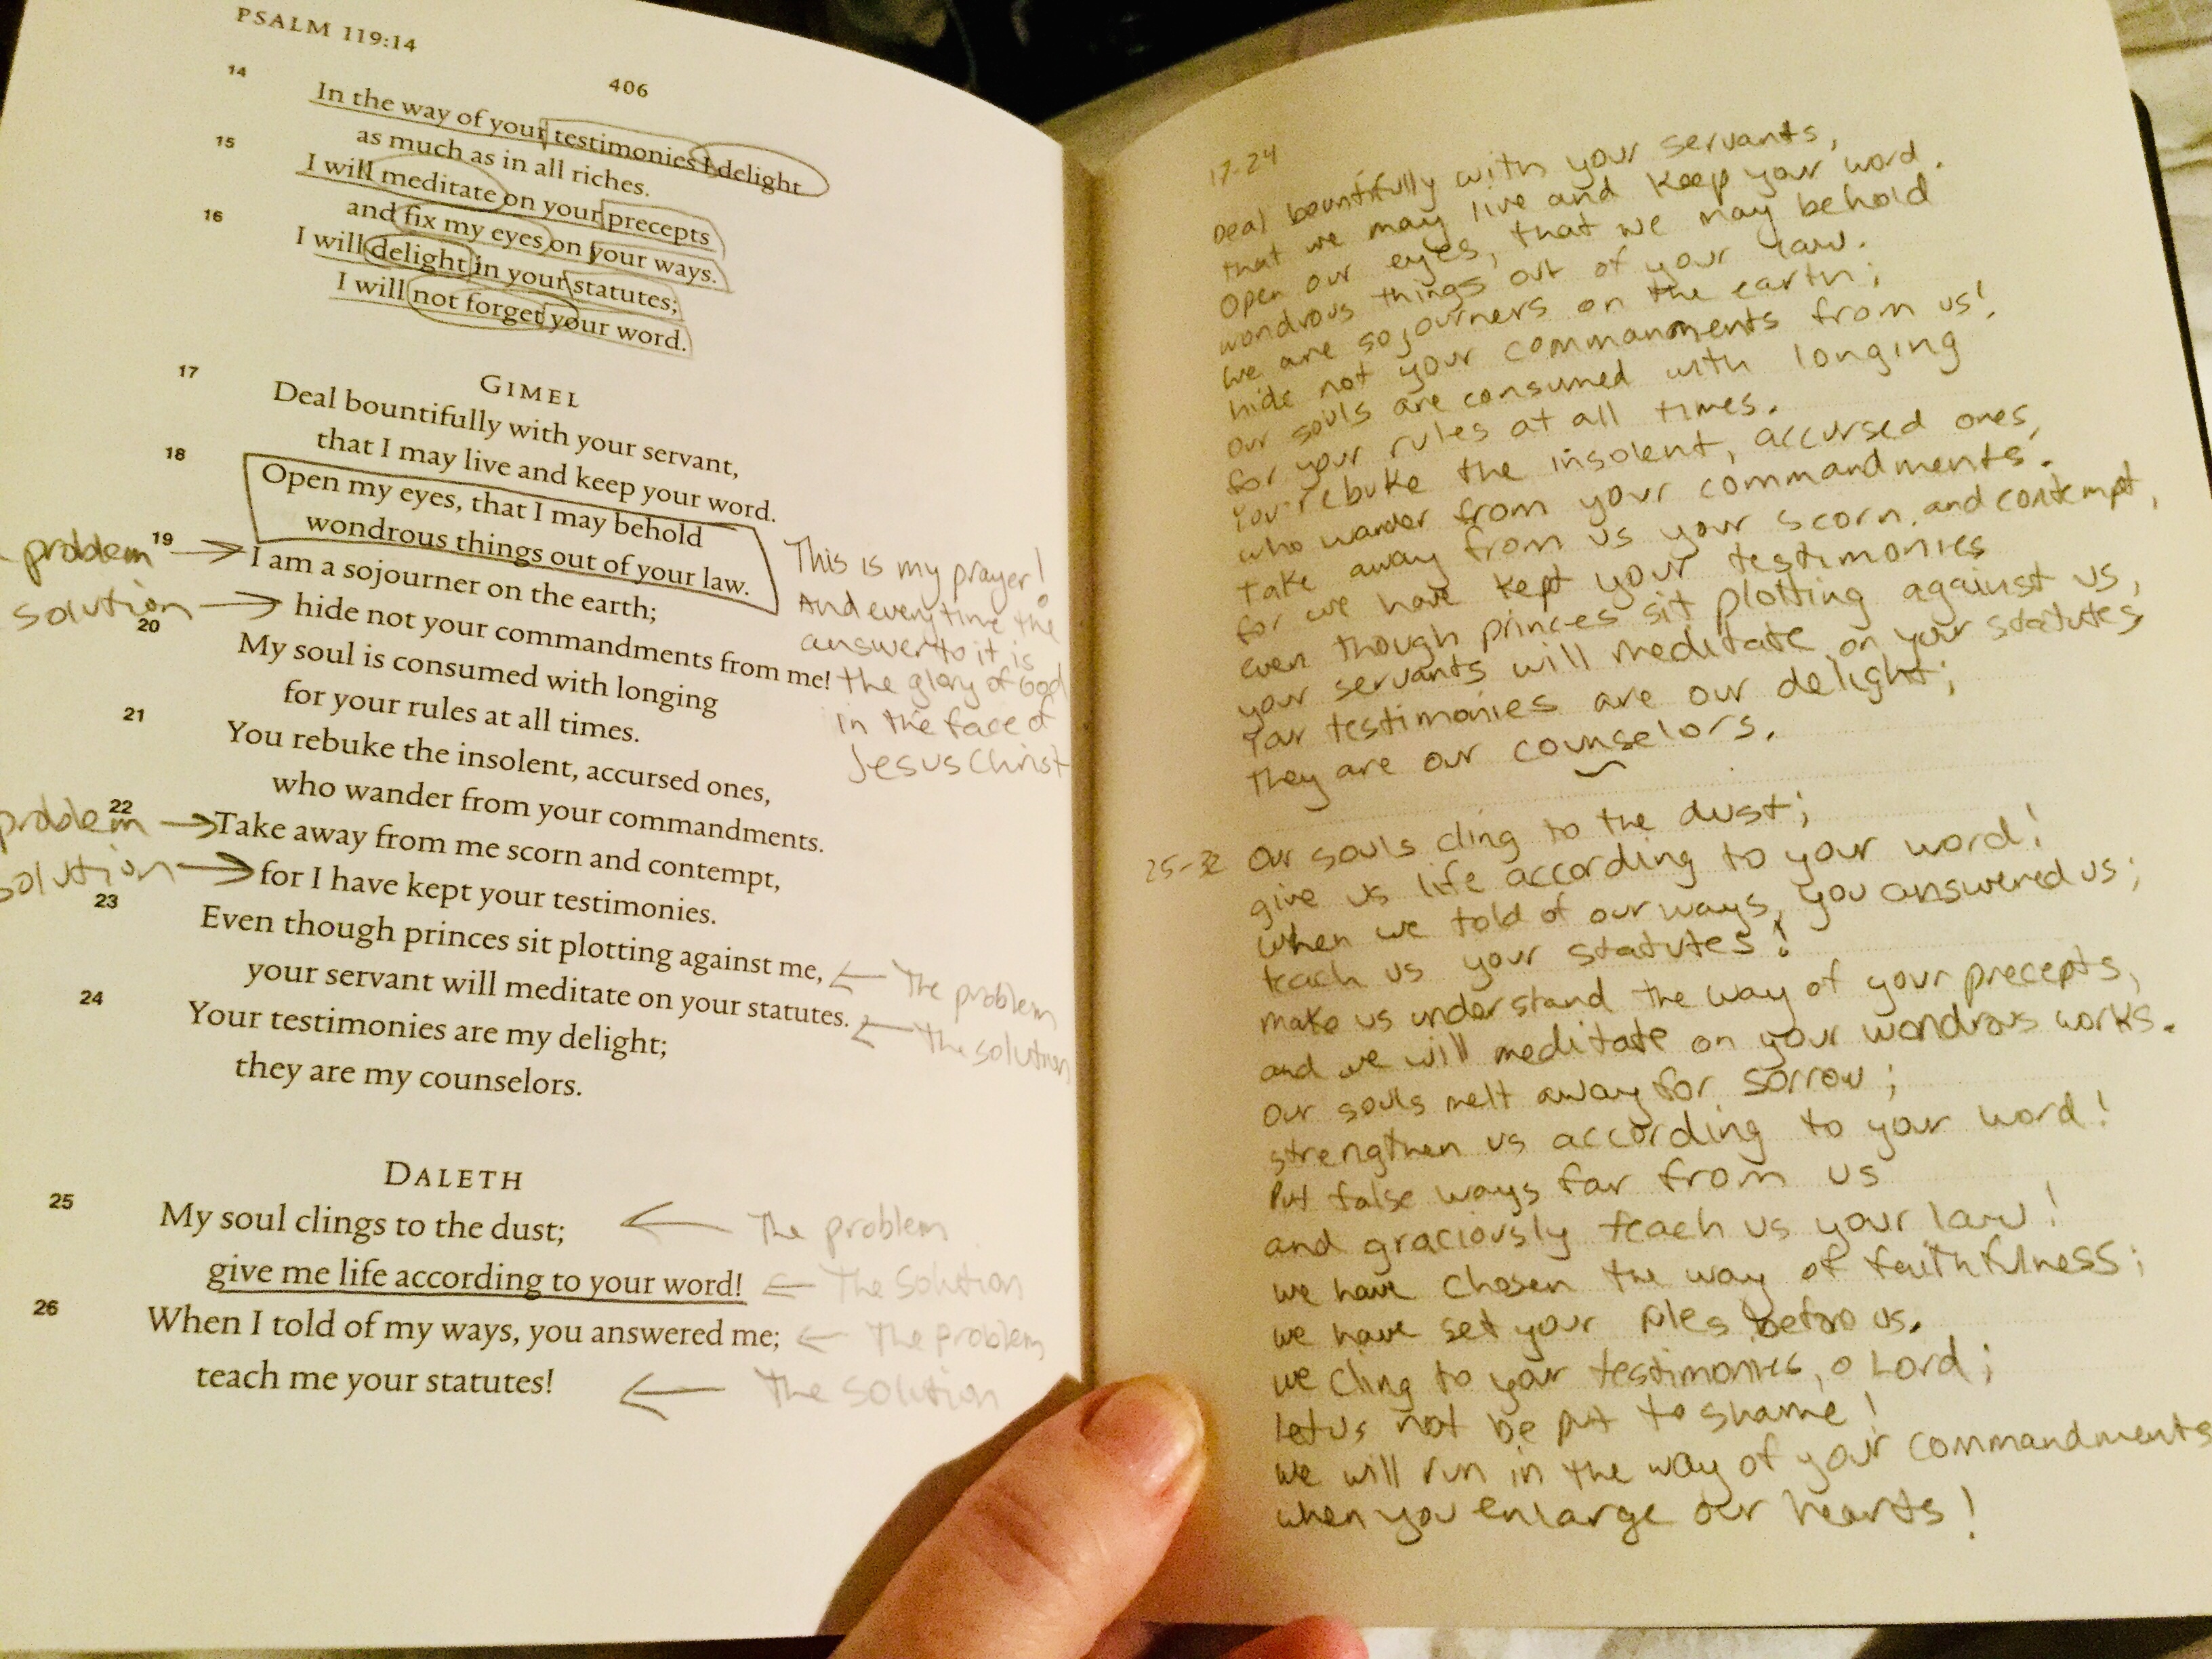 PSALM 119:14
406
14 In the way of your testimonies I delight
as much as in all riches.
15 I will meditate on your precepts
and fix my eyes on your ways.
16 I will delight in your statutes;
I will not forget your word.
GIMEL
17 Deal bountifully with your servant,
that I may live and keep your word.
18 Open my eyes, that I may behold
wondrous things out of your law.
problem → 19 I am a sojourner on the earth;
solution → hide not your commandments from me!
20 My soul is consumed with longing
for your rules at all times.
This is my prayer!
And every time the
answer to it is
the glory of God
in the face of
Jesus Christ
21 You rebuke the insolent, accursed ones,
who wander from your commandments.
problem → 22 Take away from me scorn and contempt,
solution → for I have kept your testimonies.
23 Even though princes sit plotting against me, ← The problem
your servant will meditate on your statutes. ← The solution
24 Your testimonies are my delight;
they are my counselors.
DALETH
25 My soul clings to the dust; ← The problem
give me life according to your word! ← The Solution
26 When I told of my ways, you answered me; ← The problem
teach me your statutes! ← The solution
17-24
Deal bountifully with your servants,
that we may live and keep your word.
Open our eyes, that we may behold
wondrous things out of your law.
We are sojourners on the earth;
hide not your commanments from us!
Our souls are consumed with longing
for your rules at all times.
You rebuke the insolent, accursed ones,
who wander from your commandments.
Take away from us your scorn and contempt,
for we have kept your testimonies
even though princes sit plotting against us,
your servants will meditate on your statutes
Your testimonies are our delight;
they are our counselors.
25-32 Our souls cling to the dust;
give us life according to your word!
When we told of our ways, you answered us;
teach us your statutes!
make us understand the way of your precepts,
and we will meditate on your wondrous works.
Our souls melt away for sorrow;
strengthen us according to your word!
Put false ways far from us
and graciously teach us your law!
We have chosen the way of faithfulness;
we have set your rules before us.
We cling to your testimonies, O Lord;
let us not be put to shame!
We will run in the way of your commandments
when you enlarge our hearts!